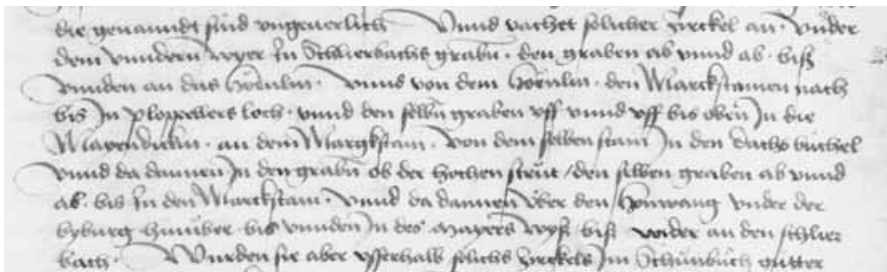 die genanndt sind vngeuerlich Vnnd vachet sölicher Zirckel an . vnder
dem vnndern wyer In Schlierbachs grabn . den graben ab vnnd ab . biß
vnnden an das hörnlin . vnnd von dem hörnlin . den Marckstainen nach
bis In ploppellers loch . vnnd den selbn graben vff vnnd vff bis oben In die
an dem Margkstain . von dem selben stain In den dachs büchel
vnnd da dannen In den grabn ob der hochen strüt / den selben graben ab vnnd
ab . bis In den Marckstain . vnnd da dannen über den Hönwang vnder der
byburg hinüber bis vnnden In des mayers wyß biß wider an den schlier
bach . Wurden sie aber vsserhalb sölichs Zirckels Im Schünbüch